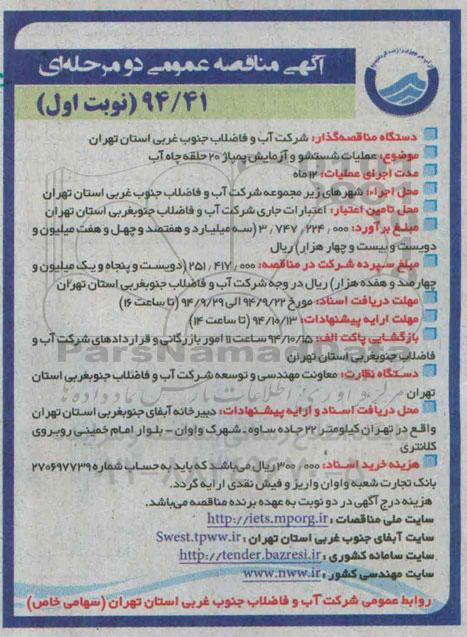 آگهی مناقصه عمومی دو مرحله‌ای
۹۴/۴۱ (نوبت اول)
دستگاه مناقصه‌گذار: شرکت آب و فاضلاب جنوب غربی استان تهران
موضوع: عملیات شستشو و آزمایش پمپاژ ۲۰ حلقه چاه آب
مدت اجرای عملیات: ۱۲ ماه
محل اجراء: شهرهای زیر مجموعه شرکت آب و فاضلاب جنوب غربی استان تهران
محل تامین اعتبار: اعتبارات جاری شرکت آب و فاضلاب جنوبغربی استان تهران
مبلغ برآورد: ۳٫۷۴۷٫۲۲۴٫۰۰۰ (سه میلیارد و هفتصد و چهل و هفت میلیون و
دویست و بیست و چهار هزار) ریال
مبلغ سپرده شرکت در مناقصه: ۲۵۱٫۴۱۷٫۰۰۰ (دویست و پنجاه و یک میلیون و
چهارصد و هفده هزار) ریال در وجه شرکت آب و فاضلاب جنوبغربی استان تهران
مهلت دریافت اسناد: مورخ ۹۴/۹/۲۲ الی ۹۴/۹/۲۹ (تا ساعت ۱۶)
مهلت ارایه پیشنهادات: ۹۴/۱۰/۱۳ (تا ساعت ۱۴)
بازگشایی پاکت الف: ۹۴/۱۰/۱۵ ساعت ۱۱ امور بازرگانی و قراردادهای شرکت آب و
فاضلاب جنوبغربی استان تهران
دستگاه نظارت: معاونت مهندسی و توسعه شرکت آب و فاضلاب جنوبغربی استان
تهران
محل دریافت اسناد و ارایه پیشنهادات: دبیرخانه آبفای جنوبغربی استان تهران
واقع در تهران کیلومتر ۲۲ جاده ساوه ـ شهرک واوان - بلوار امام خمینی روبروی
کلانتری
هزینه خرید اسناد: ۳۰۰٫۰۰۰ ریال می‌باشد که باید به حساب شماره ۲۷۰۶۹۷۷۳۹
بانک تجارت شعبه واوان واریز و فیش نقدی ارایه گردد.
هزینه درج آگهی در دو نوبت به عهده برنده مناقصه می‌باشد.
سایت ملی مناقصات : http://iets.mporg.ir
سایت آبفای جنوب غربی استان تهران : Swest.tpww.ir
سایت سامانه کشوری : http://tender.bazresi.ir
سایت مهندسی کشور : www.nww.ir
روابط عمومی شرکت آب و فاضلاب جنوب غربی استان تهران (سهامی خاص)